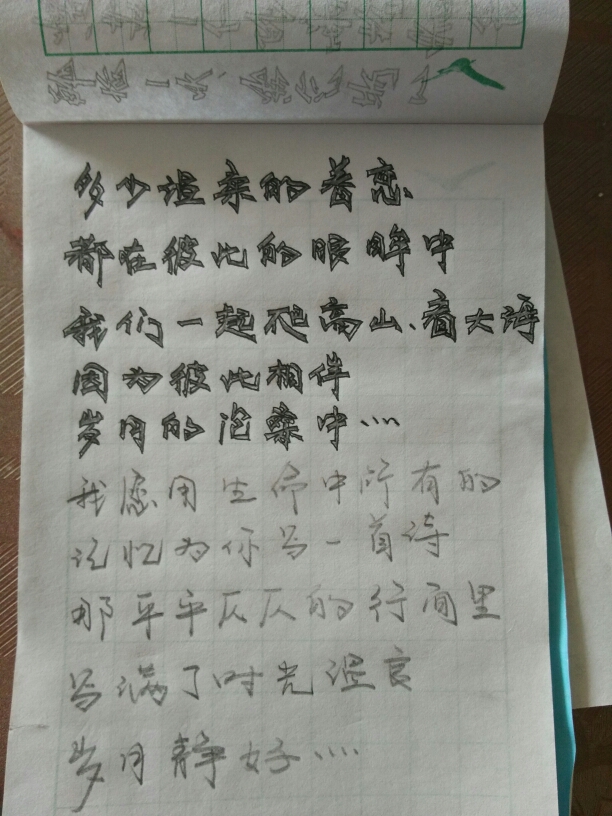 多少温柔的眷恋、
都在彼此的眼眸中
我们一起爬高山、看大海
因为彼此相伴
岁月的沧桑中····
我愿用生命中所有的
记忆为你写一首诗
那平平仄仄的行间里
写满了时光温言
岁月静好····